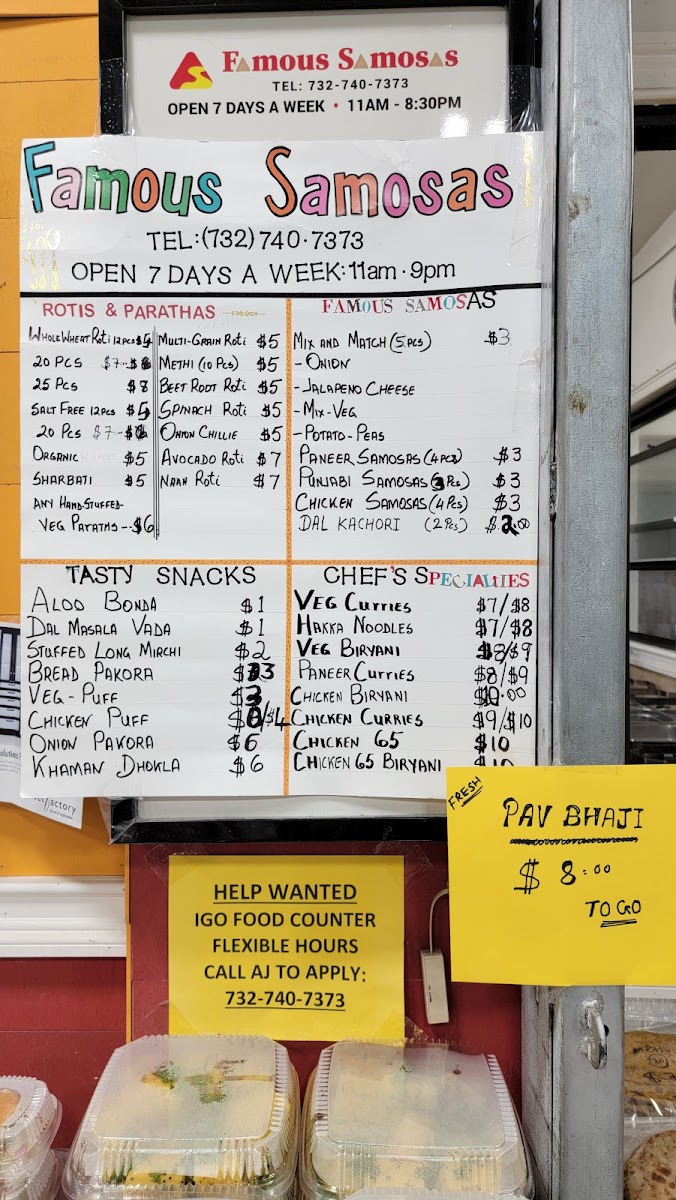 Famous Samosas
TEL: 732-740-7373
OPEN 7 DAYS A WEEK • 11AM - 8:30PM
Famous Samosas
TEL:(732)740·7373
OPEN 7 DAYS A WEEK:11am·9pm
ROTIS & PARATHAS
WHOLE WHEAT ROTI 12PCS $5
20 PCS $7-$8
25 PCS $8
SALT FREE 12PCS $5
20 PCS $7-$8
ORGANIC $5
SHARBATI $5
ANY HAND-STUFFED-
VEG PARATHS--$6
MULTI-GRAIN ROTI $5
METHI (10 PCS) $5
BEET ROOT ROTI $5
SPINACH ROTI $5
ONION CHILLIE $5
AVOCADO ROTI $7
NAAN ROTI $7
FAMOUS SAMOSAS
MIX AND MATCH (5 PCS) $3
-ONION
-JALAPENO CHEESE
-MIX-VEG
-POTATO-PEAS
PANEER SAMOSAS (4 PCS) $3
PUNJABI SAMOSAS (3 PCS) $3
CHICKEN SAMOSAS (4 PCS) $3
DAL KACHORI (2 PCS) $2.00
TASTY SNACKS
ALOO BONDA $1
DAL MASALA VADA $1
STUFFED LONG MIRCHI $2
BREAD PAKORA $3
VEG-PUFF $3
CHICKEN PUFF /$4
ONION PAKORA $6
KHAMAN DHOKLA $6
CHEF'S SPECIALTIES
VEG CURRIES $7/$8
HAKKA NOODLES $7/$8
VEG BIRYANI $8/$9
PANEER CURRIES $8/$9
CHICKEN BIRYANI $10.00
CHICKEN CURRIES $9/$10
CHICKEN 65 $10
CHICKEN 65 BIRYANI $10
FRESH
PAV BHAJI
$ 8.00
TO GO
HELP WANTED
IGO FOOD COUNTER
FLEXIBLE HOURS
CALL AJ TO APPLY:
732-740-7373